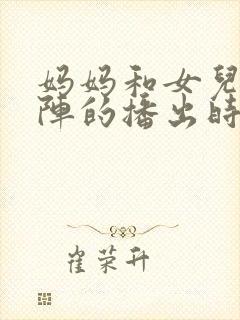 妈妈和女兒
陣的播出時
崔荣升